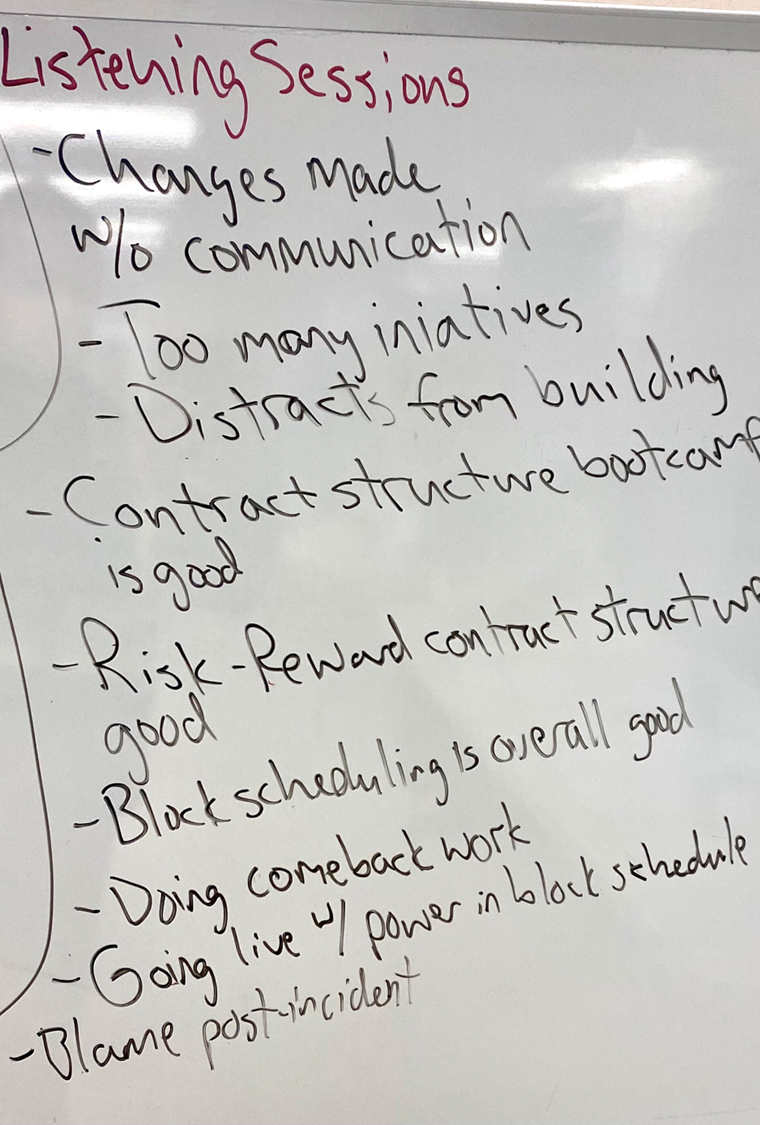 Listening Sessions
- Changes made
w/o communication
- Too many iniatives
- Distracts from building
- Contract structure bootcamp
is good
- Risk-Reward contract structure
good
- Block scheduling is overall good
- Doing comeback work
- Going live w/ power in block schedule
- Blame post-incident